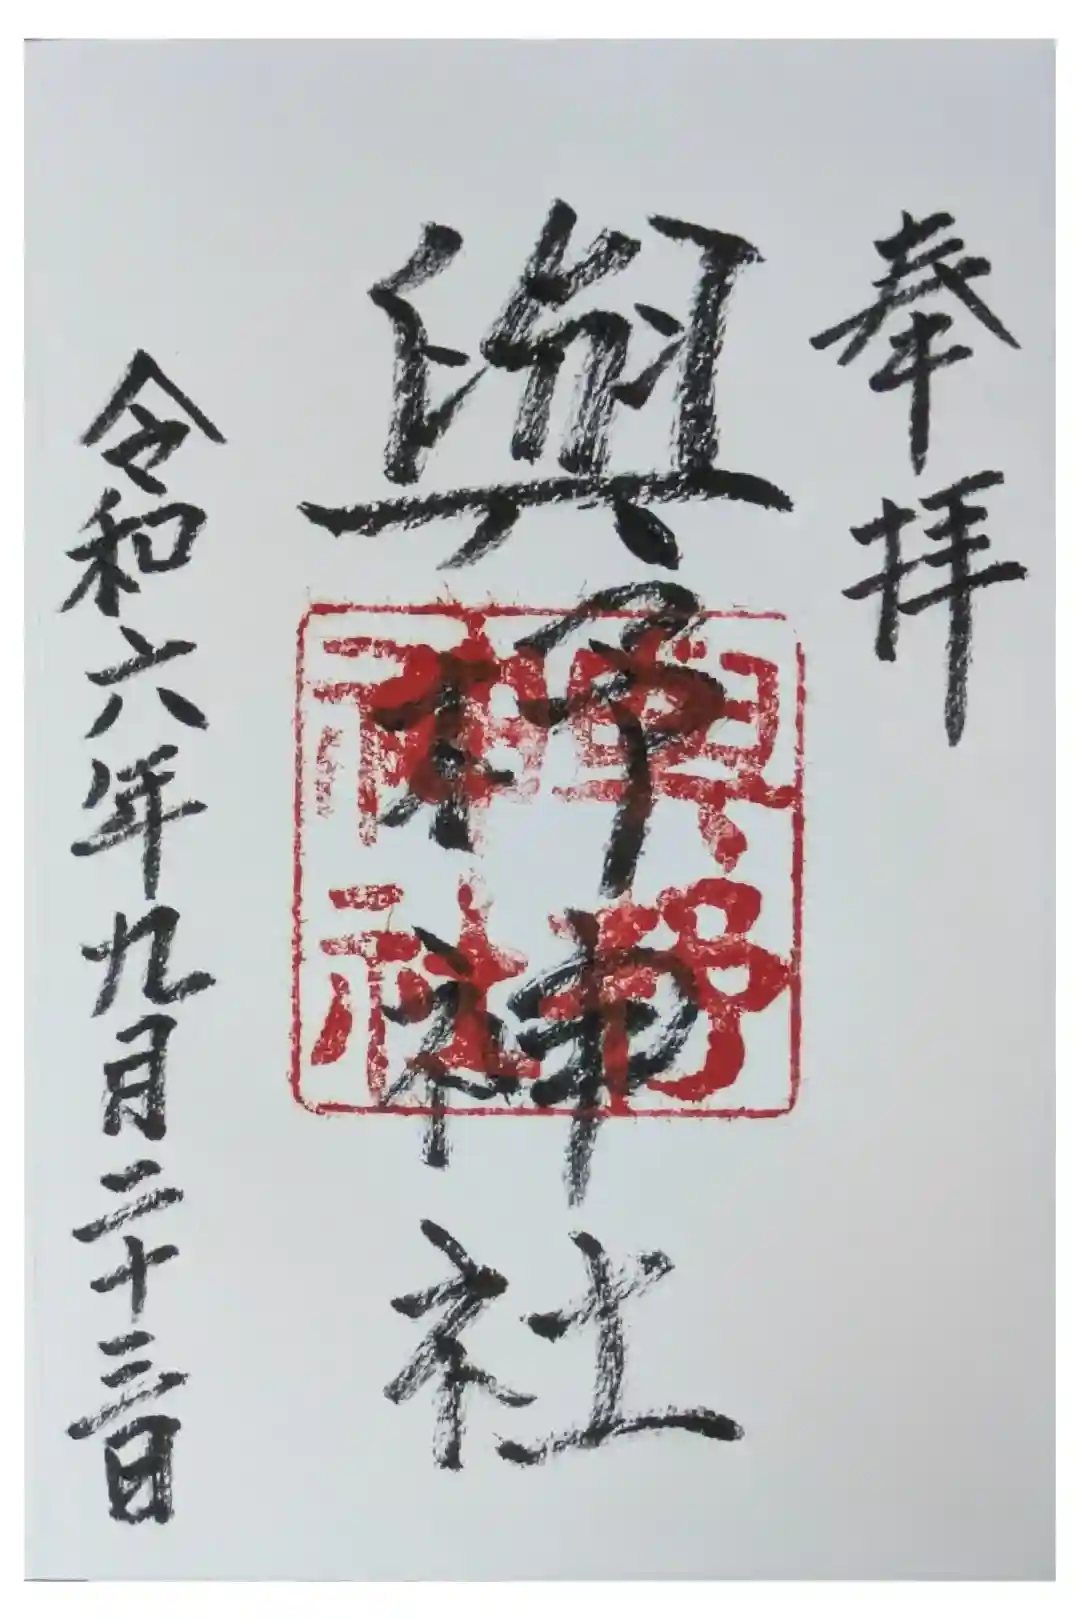 奉拝
與杼神社
與杼
神社
令和六年九月二十三日